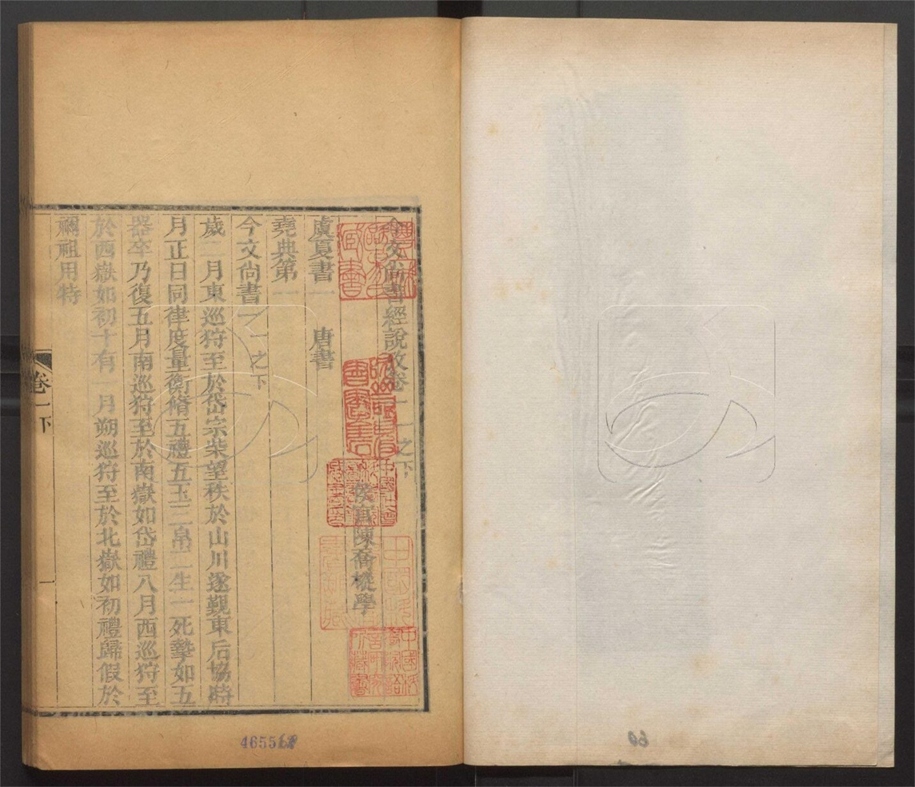 今文尚書經說攷卷一 一之下
侯官陳喬樅學
虞夏書一 唐書
堯典第一
今文尚書一 一之下
歲二月東巡狩至於岱宗柴望秩於山川遂覲東后協時
月正日同律度量衡脩五禮五玉三帛二生一死摯如五
器卒乃復五月南巡狩至於南嶽如岱禮八月西巡狩至
於西嶽如初十有一月朔巡狩至於北嶽如初禮歸假於
禰祖用特
卷一下
一